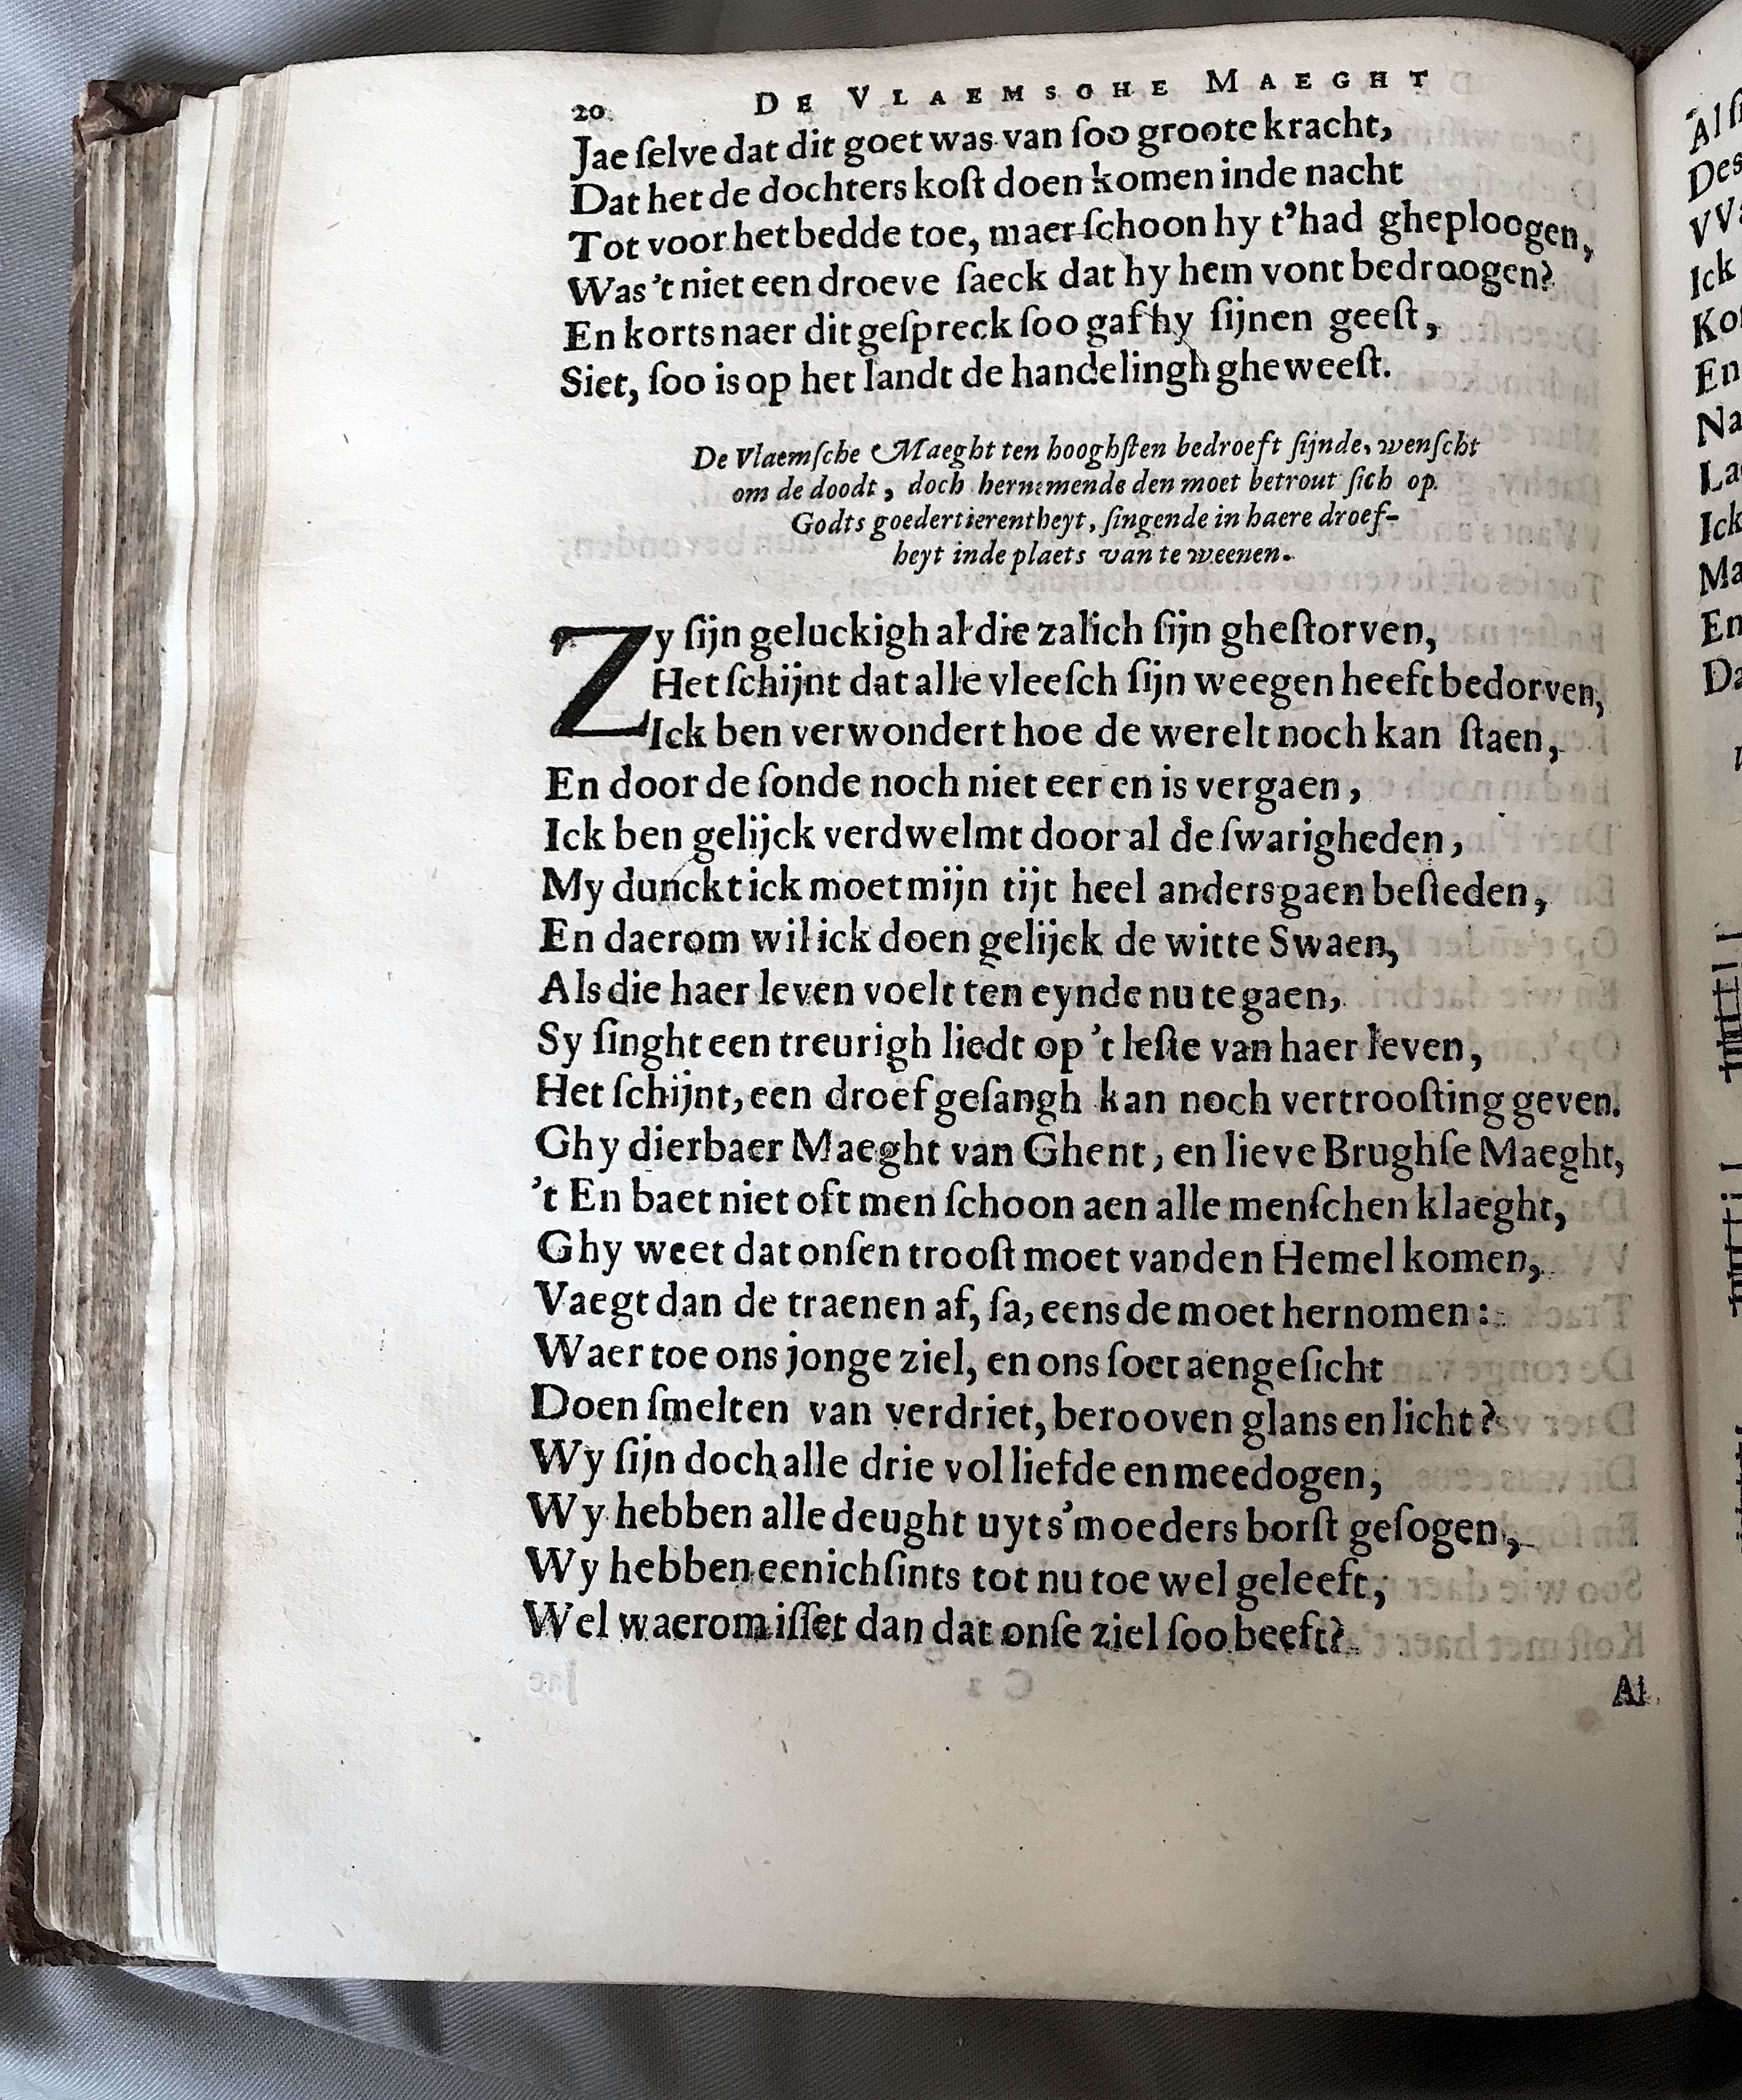 20 DE VLAEMSCHE MAEGHT
Jae ſelve dat dit goet was van ſoo groote kracht,
Dat het de dochters koſt doen komen inde nacht
Tot voor het bedde toe, maer ſchoon hy t'had gheploogen,
Was 't niet een droeve ſaeck dat hy hem vont bedroogen?
En korts naer dit geſpreck ſoo gaf hy ſijnen geeſt,
Siet, ſoo is op het landt de handelingh gheweeſt.
De Vlaemſche Maeght ten hooghſten bedroeft ſijnde, wenſcht
om de doodt, doch hernemende den moet betrout ſich op
Godts goedertierentheyt, ſingende in haere droef-
heyt inde plaets van te weenen.
Zy ſijn geluckigh al die zalich ſijn gheſtorven,
Het ſchijnt dat alle vleeſch ſijn weegen heeft bedorven,
Ick ben verwondert hoe de werelt noch kan ſtaen,
En door de ſonde noch niet eer en is vergaen,
Ick ben gelijck verdwelmt door al de ſwarigheden,
My dunckt ick moet mijn tijt heel anders gaen beſteden,
En daerom wil ick doen gelijck de witte Swaen,
Als die haer leven voelt ten eynde nu te gaen,
Sy ſinght een treurigh liedt op 't leſte van haer leven,
Het ſchijnt, een droef geſangh kan noch vertrooſting geven.
Ghy dierbaer Maeght van Ghent, en lieve Brughſe Maeght,
't En baet niet oft men ſchoon aen alle menſchen klaeght,
Ghy weet dat onſen trooſt moet vanden Hemel komen,
Vaegt dan de traenen af, ſa, eens de moet hernomen:
Waer toe ons jonge ziel, en ons ſoet aengeſicht
Doen ſmelten van verdriet, berooven glans en licht?
Wy ſijn doch alle drie vol liefde en meedogen,
Wy hebben alle deught uyt s'moeders borſt geſogen,
Wy hebben eenichſints tot nu toe wel geleeft,
Wel waerom iſſet dan dat onſe ziel ſoo beeft?
Al
Al
Des
Ick
En
Na
Ick
Ma
En
Da